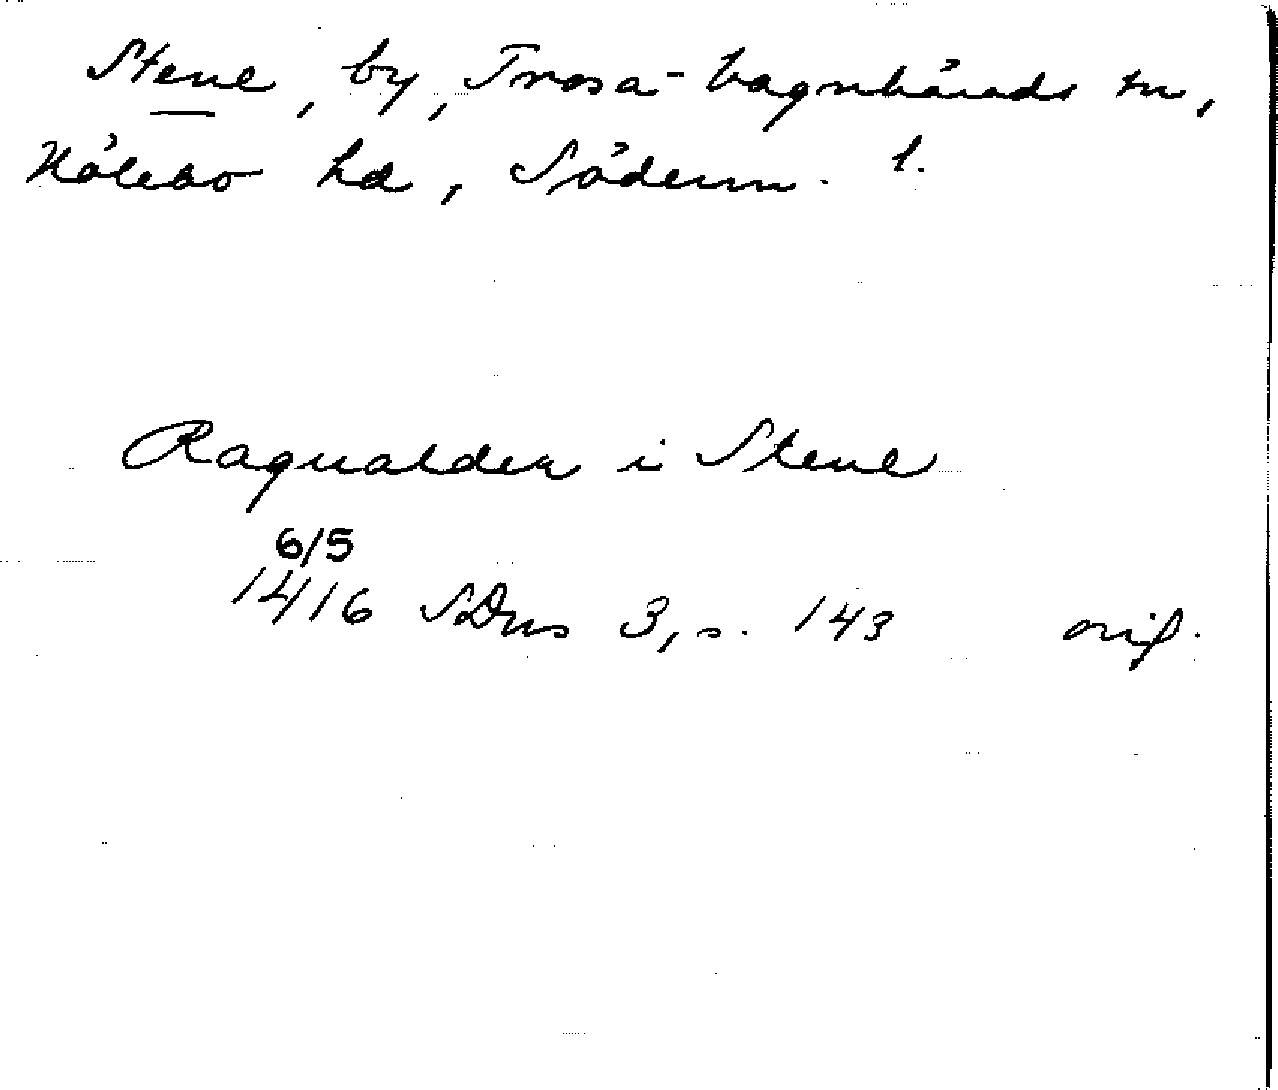 Stene, by, Trosa-Vagnhärads sn,
Hölebo hd, Söderm. l.
Ragualder i Stene
6/5
1416 SDns 3, s. 143 orig.